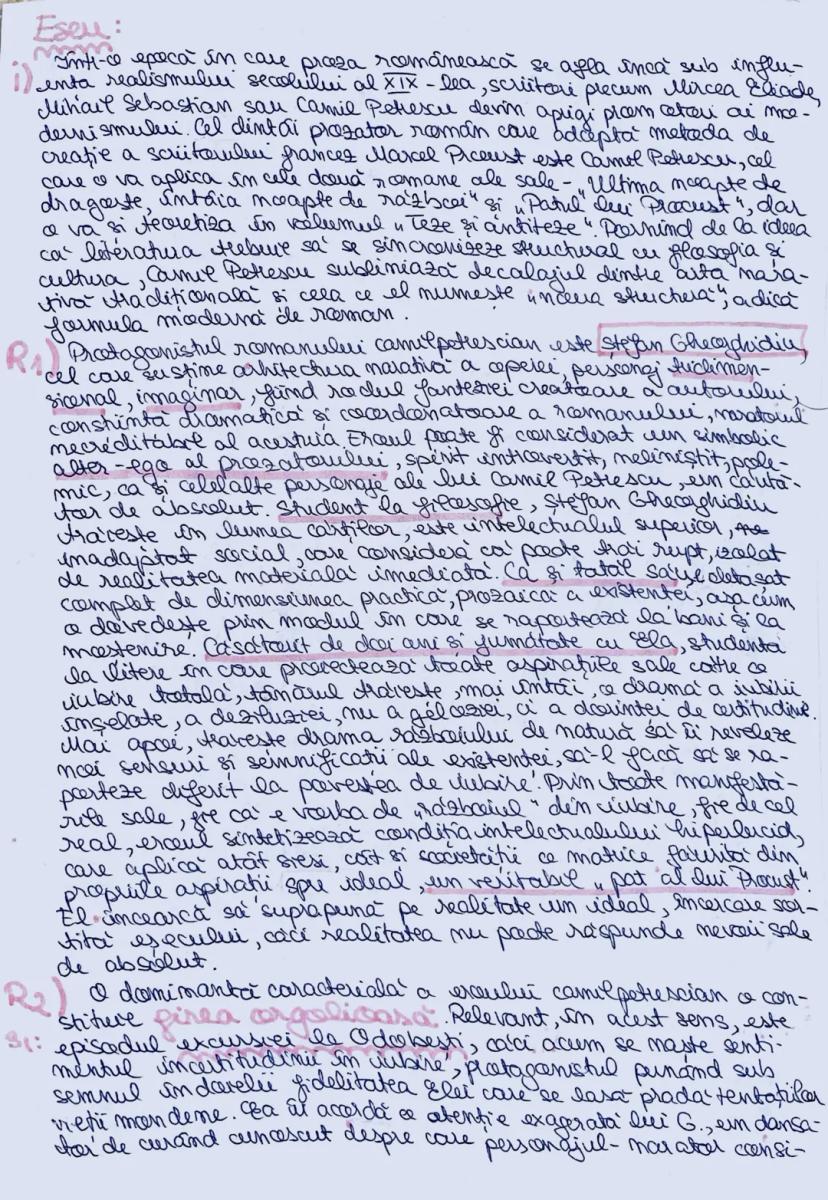 Eseu:
Într-o epocă în care proza românească se afla încă sub influ-
i) ența realismului secolului al XIX-lea, scriitori precum Mircea Eliade,
Mihail Sebastian sau Camil Petrescu devin aprigi promotori ai mo-
dernismului. Cel dintâi prozator român care adoptă metoda de
creație a scriitorului francez Marcel Proust este Camil Petrescu, cel
care o va aplica în cele două romane ale sale - "Ultima noapte de
dragoste, întâia noapte de război" și "Patul lui Procust", dar
o va și teoretiza în volumul "Teze și antiteze". Pornind de la ideea
că literatura trebuie să se sincronizeze structural cu filosofia și
cultura, Camil Petrescu subliniază decalajul dintre arta nara-
tivă tradițională și ceea ce el numește "noua structură", adică
formula modernă de roman.
R1) Protagonistul romanului camilpetrescian este Ștefan Gheorghidiu,
cel care susține arhitectura narativă a operei, personaj tridimen-
sional, imaginar, fiind rodul fanteziei creatoare a autorului,
conștiință dramatică și coordonatoare a romanului, naratorul
necreditabil al acestuia. Eroul poate fi considerat un simbolic
alter-ego al prozatorului, spirit introvertit, neliniștit, pole-
mic, ca și celelalte personaje ale lui Camil Petrescu, un căută-
tor de absolut. Student la filosofie, Ștefan Gheorghidiu
trăiește în lumea cărților, este intelectualul superior,
inadaptat social, care consideră că poate trăi rupt, izolat
de realitatea materială imediată. Ca și tatăl său, e detașat
complet de dimensiunea practică, prozaică a existenței, așa cum
o dovedește prin modul în care se raportează la bani și la
moștenire. Căsătorit de doi ani și jumătate cu Ela, studentă
la Litere în care proiectează toate aspirațiile sale către o
iubire totală, tânărul trăiește, mai întâi, o dramă a iubirii
înșelate, a deziluziei, nu a geloziei, ci a dorinței de certitudine.
Mai apoi, trăiește drama războiului de natură să îi reveleze
noi sensuri și semnificații ale existenței, să-l facă să se ra-
porteze diferit la povestea de iubire. Prin toate manifestă-
rile sale, fie că e vorba de "războiul" din iubire, fie de cel
real, eroul sintetizează condiția intelectualului hiperlucid,
care aplică atât sieși, cât și societății o matrice făurită din
propriile aspirații spre ideal, un veritabil "pat al lui Procust".
El încearcă să suprapună pe realitate un ideal, încercare sor-
tită eșecului, căci realitatea nu poate răspunde nevoii sale
de absolut.
R2) O dominantă caracterială a eroului camilpetrescian o con-
stituie firea orgolioasă. Relevant, în acest sens, este
S1: episodul excursiei la Odobești, căci acum se naște senti-
mentul incertitudinii în iubire, protagonistul punând sub
semnul îndoielii fidelitatea Elei care se lasă pradă tentațiilor
vieții mondene. Ea îi acordă o atenție exagerată lui G., un dansa-
tor de curând cunoscut despre care personajul-narator consi-